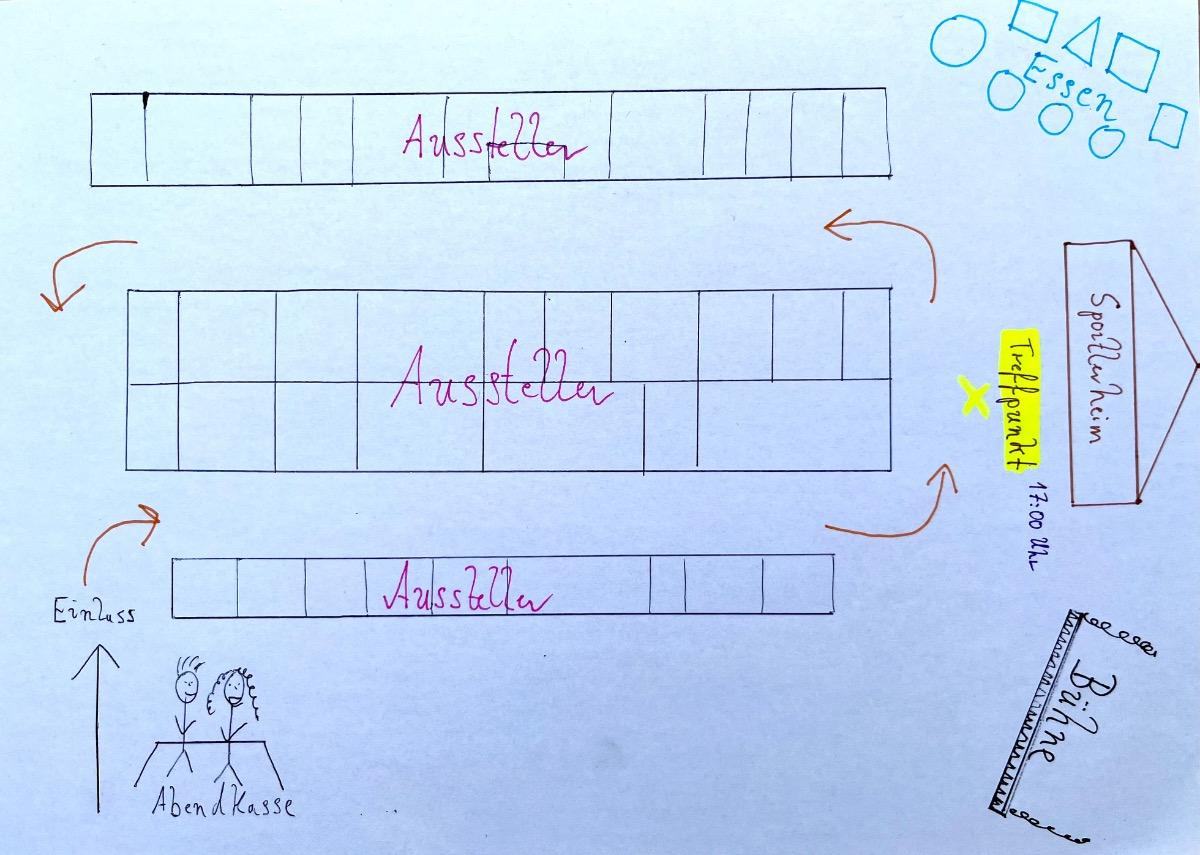 Essen
Aussteller
Aussteller
Sportlerheim
Treffpunkt
17:00 Uhr
Aussteller
Einluss
Bühne
Abendkasse